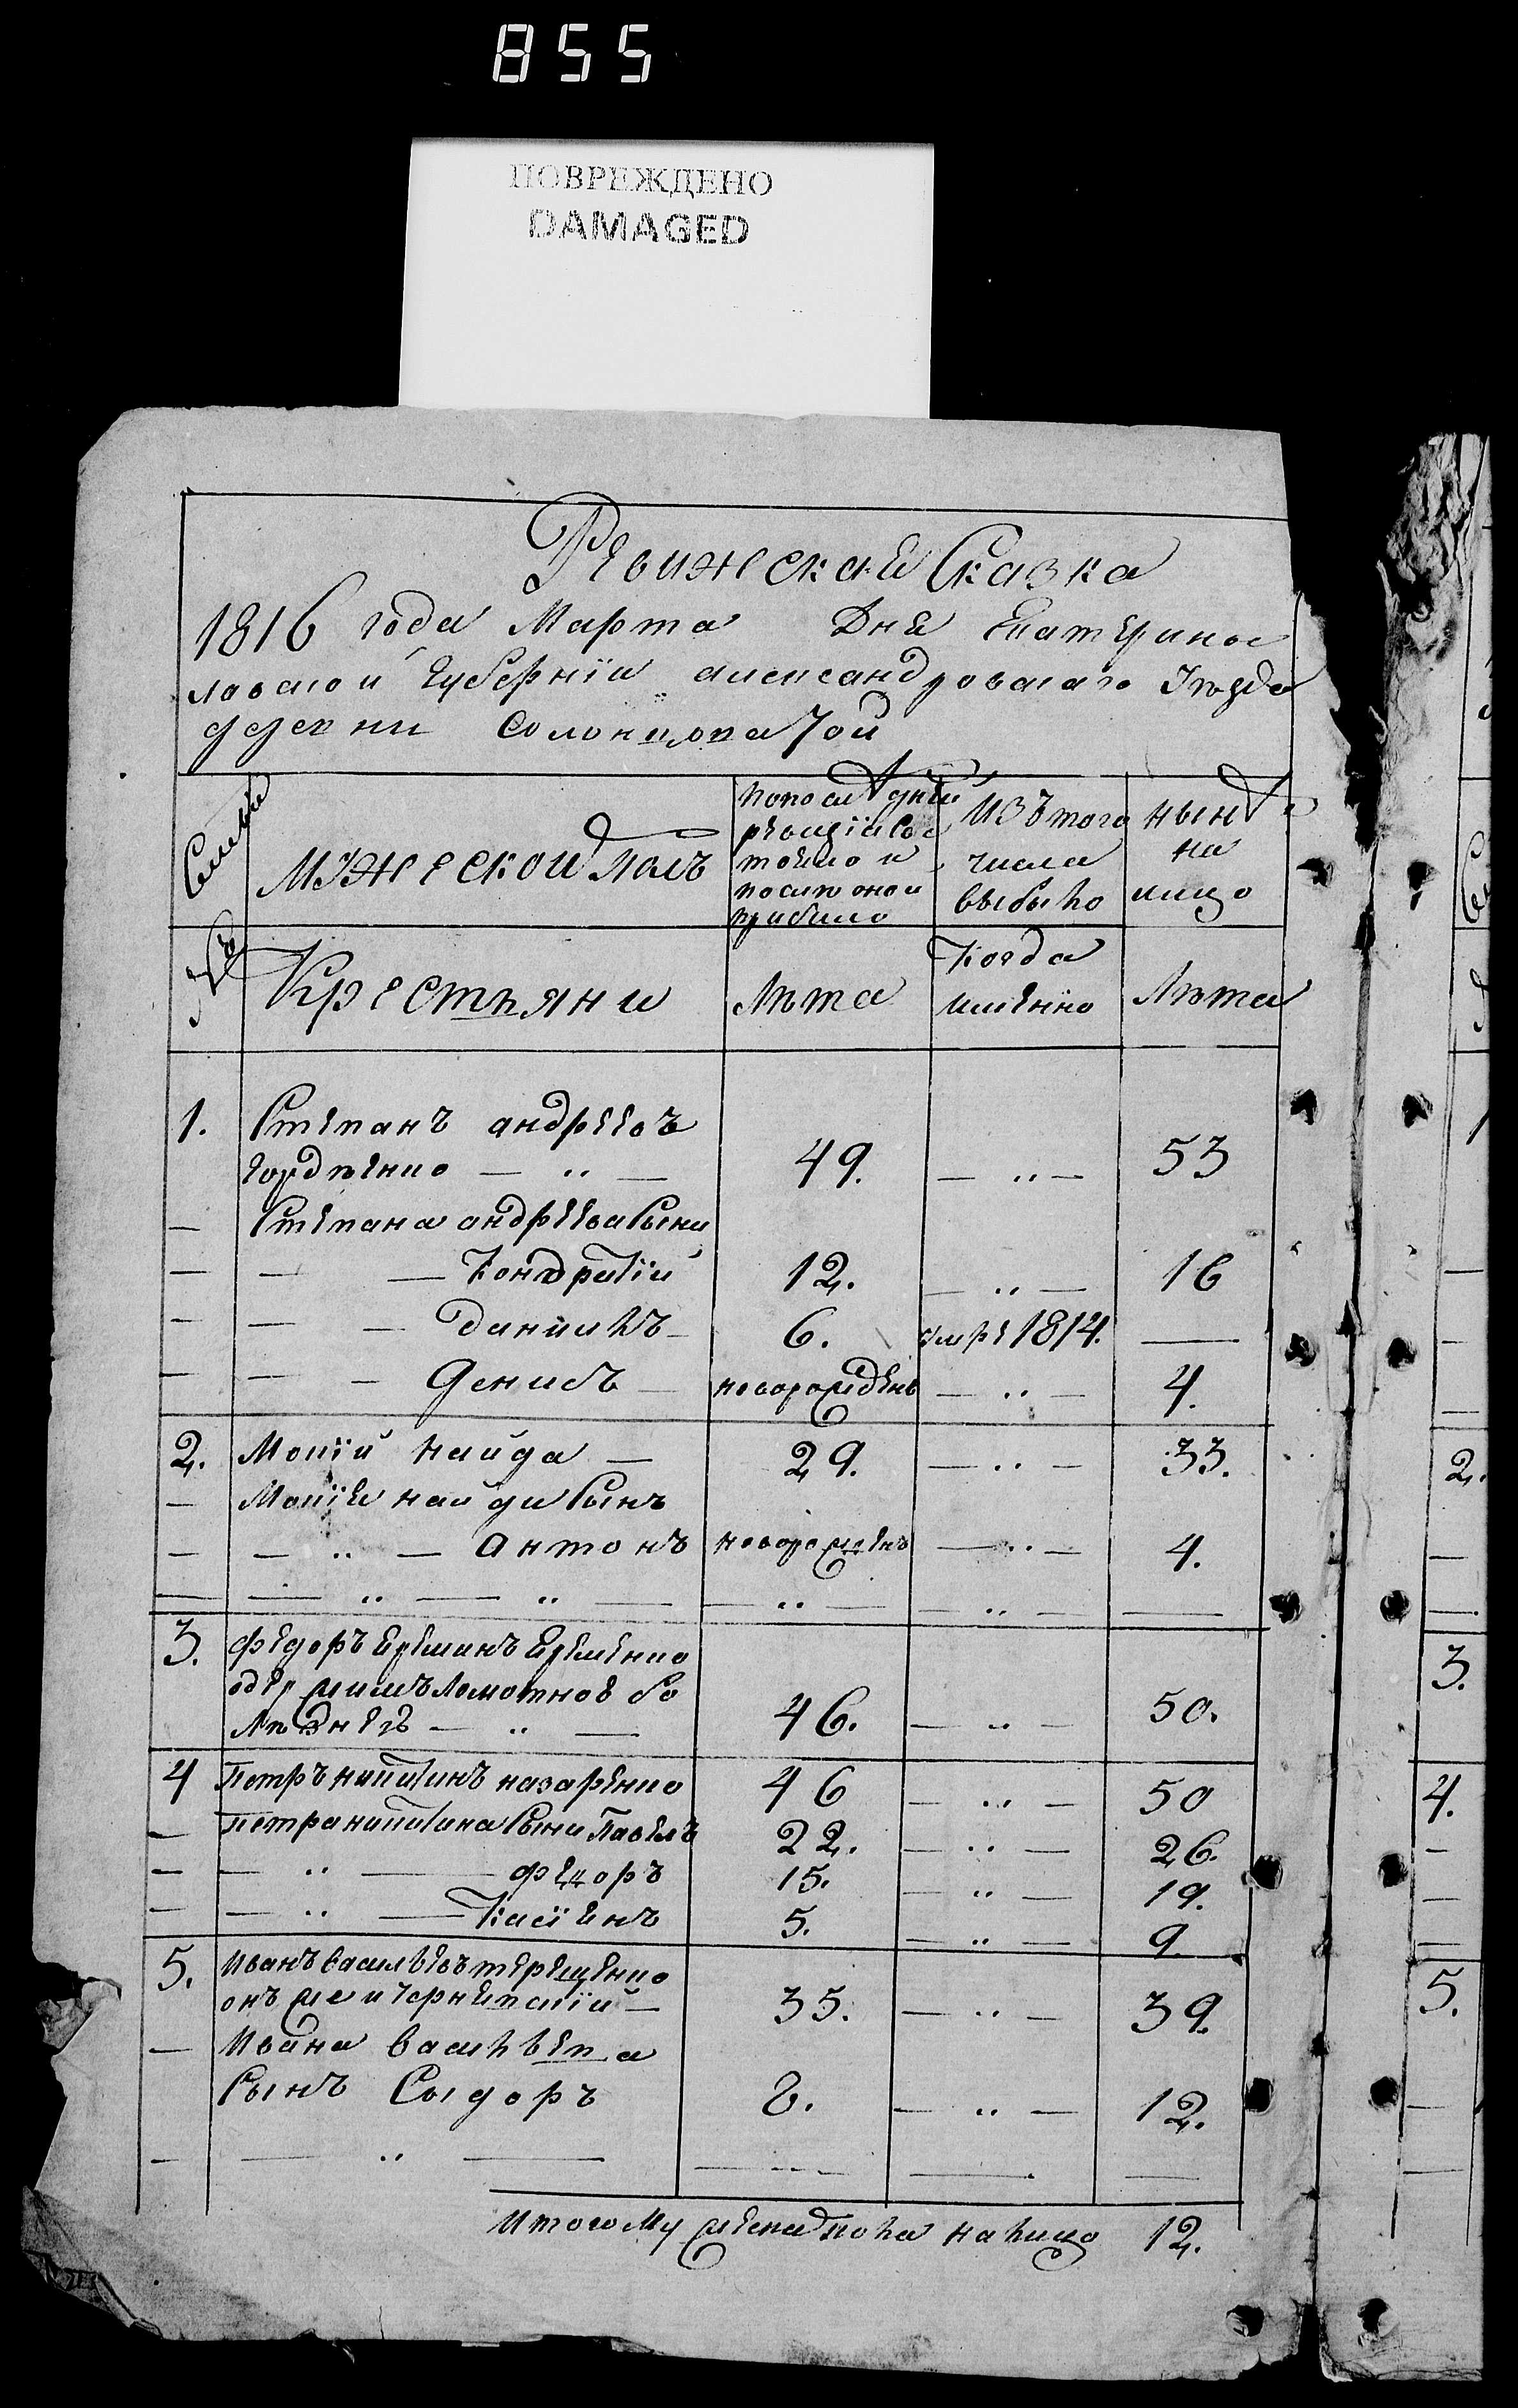 855
ПОВРЕЖДЕНО
DAMAGED
Ревижская Сказка
1816 года Марта Дня Екатеринос
лавской Губернїи александровскаго Уѣзда
деревни Солонцоватой
Семьи
мужеской полъ
попоследней
ревизїи сос
тояло и
послѣ оной
прибыло
изътого
числа
выбыло
нынѣ
на
лицо
№
Крестьяни
Лѣта
Когда
имянно
Лѣта
1. Степанъ андреевъ
гордѣенко — „ — 49. — „ — 53
— Степана андреева сыни
— — — Кондратїй 12. — „ — 16
— — — данїилъ — 6. умре 1814. —
— — — денисъ — новорожденъ — „ — 4.
2. Мокїй найда — 29. — „ — 33.
— Мокїя найди сынъ
— — „ — антонъ новорожденъ — „ — 4.
— — „ — „ — — „ — — „ — —
3. федоръ еремин еременко
одержимъ ломотною бо
лѣзнею — „ — 46. — „ — 50.
4 Петръ никитинъ назаренко 46 — „ — 50
— Петра никитина сыни Павелъ 22. — „ — 26.
— — „ — федоръ 15. — „ — 19.
— — „ — Касїянъ 5. — „ — 9.
5. Иванъ васильевъ терещенко
онъ же и Чернявскїй — 35. — „ — 39.
— Ивана васильева
сынъ Сыдоръ 8. — „ — 12.
— — „ — — „ — — —
Итого мужеска пола налицо 12.
1
2.
3.
4.
5.